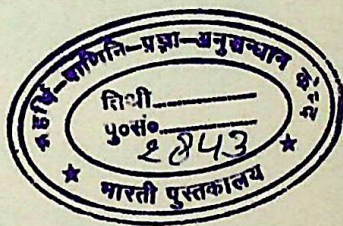 महर्षि-पाणिनि-प्रज्ञा-अनुसन्धान केन्द्र
तिथी
पु०सं० 2843
★ भारती पुस्तकालय ★